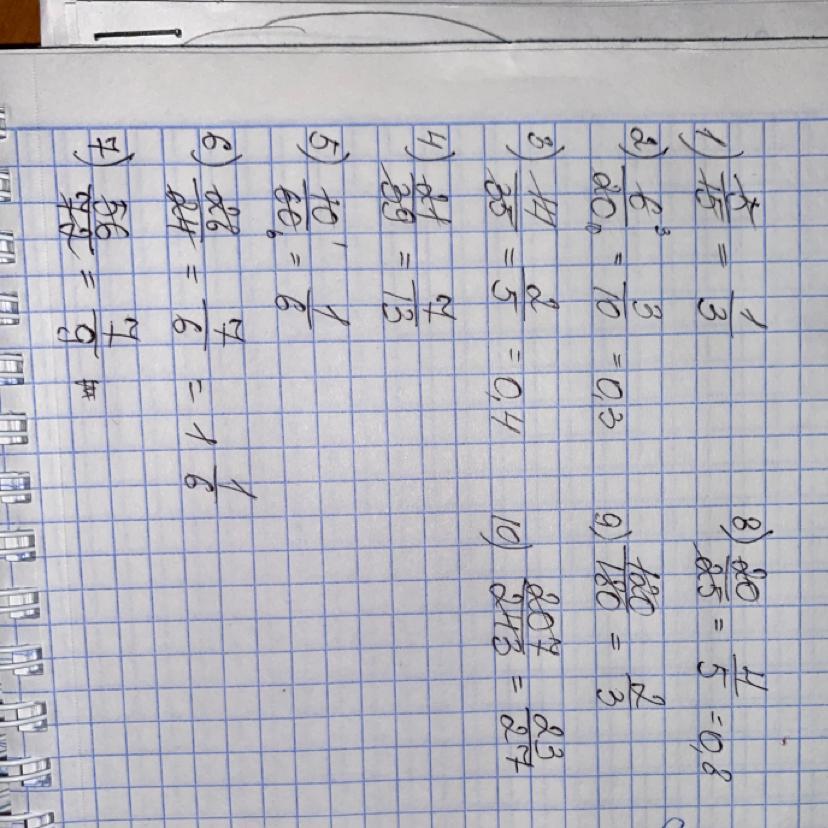 1) 5/15 = 1/3
2) 6/20 = 3/10 = 0,3
3) 14/35 = 2/5 = 0,4
4) 21/39 = 7/13
5) 10/60 = 1/6
6) 28/24 = 7/6 = 1 1/6
7) 56/72 = 7/9
8) 20/25 = 4/5 = 0,8
9) 120/180 = 2/3
10) 207/243 = 23/27